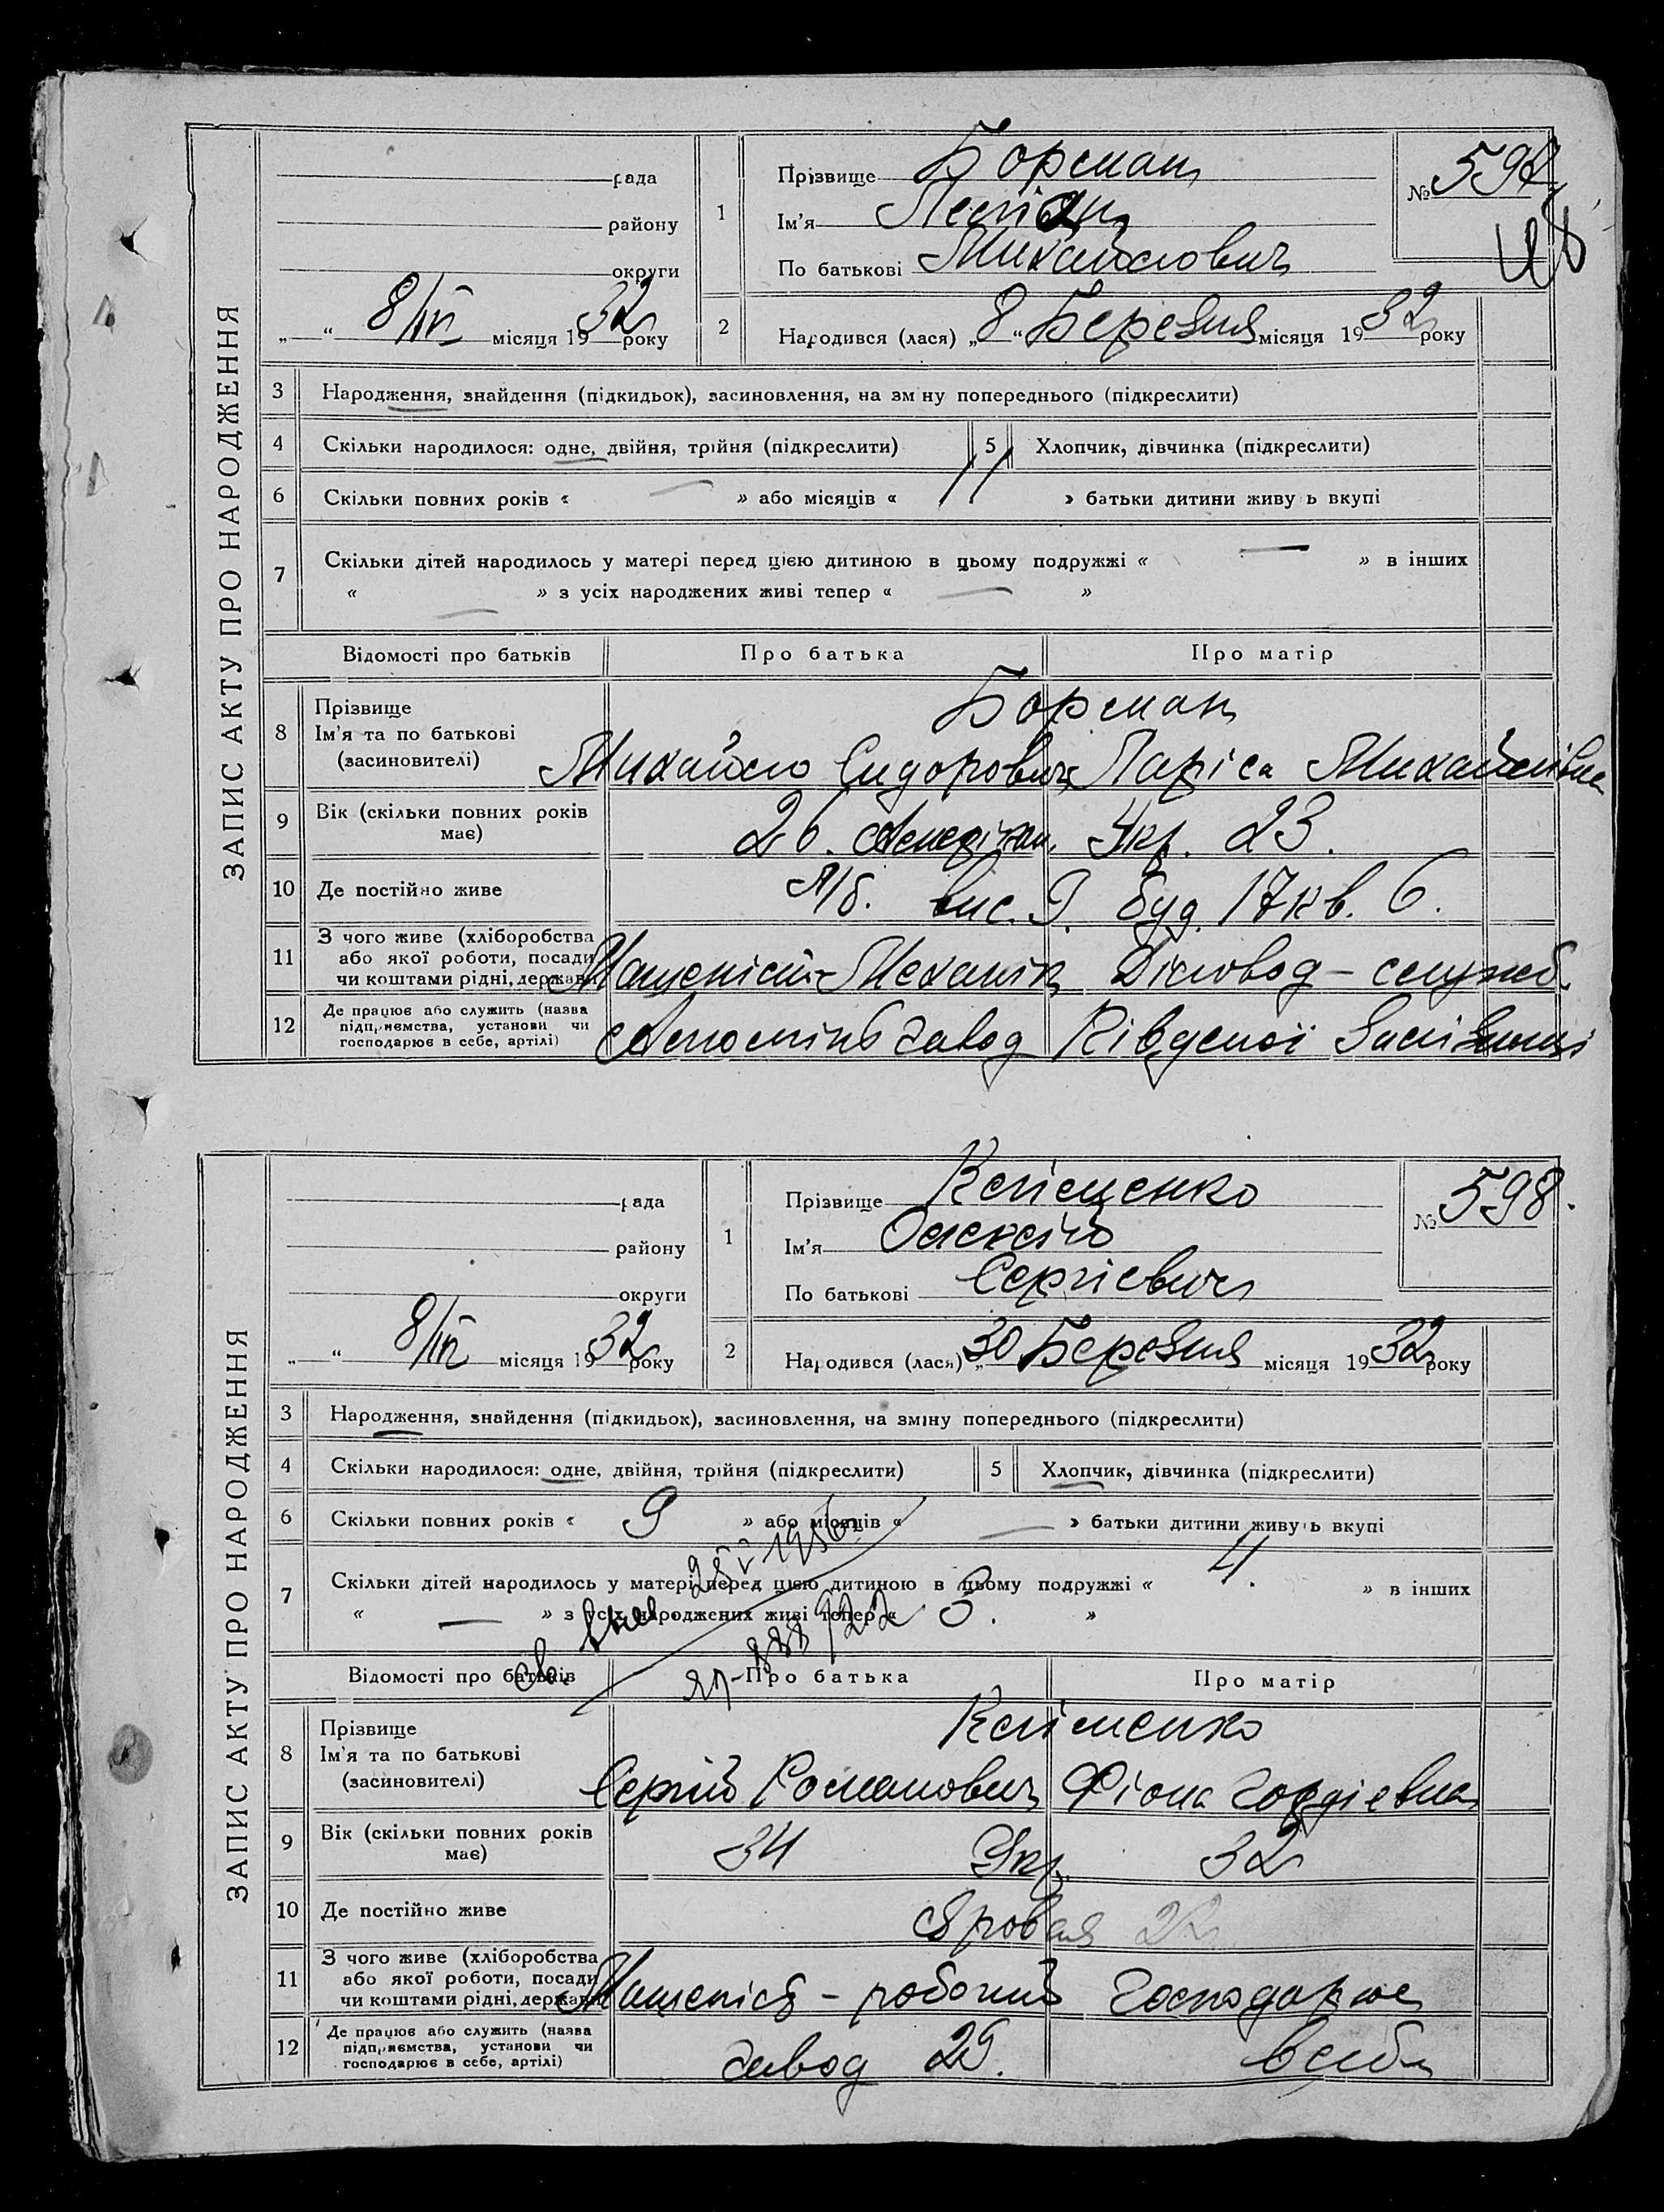 ЗАПИС АКТУ ПРО НАРОДЖЕННЯ
рада
району
округи
„ “ 8/IV місяця 1932 року
1
Прізвище Борман
Ім'я
По батькові Михайлович
№ 597
2 Народився (лася) „8“ Березня місяця 1932 року
3 Народження, знайдення (підкидьок), засиновлення, на зм ну попереднього (підкреслити)
4 Скільки народилося: одне, двійня, трійня (підкреслити)
5 Хлопчик, дівчинка (підкреслити)
6 Скільки повних років « — » або місяців « 11 » батьки дитини живу ь вкупі
7 Скільки дітей народилось у матері перед цією дитиною в цьому подружжі « — » в інших
« — » з усіх народжених живі тепер « — »
Відомості про батьків Про батька Про матір
8 Прізвище
Ім'я та по батькові
(засиновителі)
Борман
Михайло Сидорович Ларіса Михайлівна
9 Вік (скільки повних років має)
26. Американ. Укр. 23.
10 Де постійно живе
буд. 17 кв. 6.
11 З чого живе (хліборобства
або якої роботи, посади
чи коштами рідні, держави
Механік Діловод – служб.
12 Де працює або служить (назва
підприємства, установи чи
господарює в себе, артілі)
завод Південної Залізниці
ЗАПИС АКТУ ПРО НАРОДЖЕННЯ
рада
району
округи
„ “ 8/IV місяця 1932 року
1
Прізвище Кліменко
Ім'я Олексій
По батькові Сергієвич
№ 598.
2 Народився (лася) „30 Березня місяця 1932 року
3 Народження, знайдення (підкидьок), засиновлення, на зміну попереднього (підкреслити)
4 Скільки народилося: одне, двійня, трійня (підкреслити)
5 Хлопчик, дівчинка (підкреслити)
6 Скільки повних років « 9 » або місяців « — » батьки дитини живу ь вкупі
7 Скільки дітей народилось у матері перед цією дитиною в цьому подружжі « 4. » в інших
« — » з усіх народжених живі тепер « 3. »
Відомості про батьків Про батька Про матір
8 Прізвище
Ім'я та по батькові
(засиновителі)
Кліменко
Сергій Романович Фіона Гордієвна
9 Вік (скільки повних років має)
34 Укр. 32
10 Де постійно живе
Яровая 22
11 З чого живе (хліборобства
або якої роботи, посади
чи коштами рідні, держави
робочий Господарює
12 Де працює або служить (назва
підприємства, установи чи
господарює в себе, артілі)
завод 29. в себе